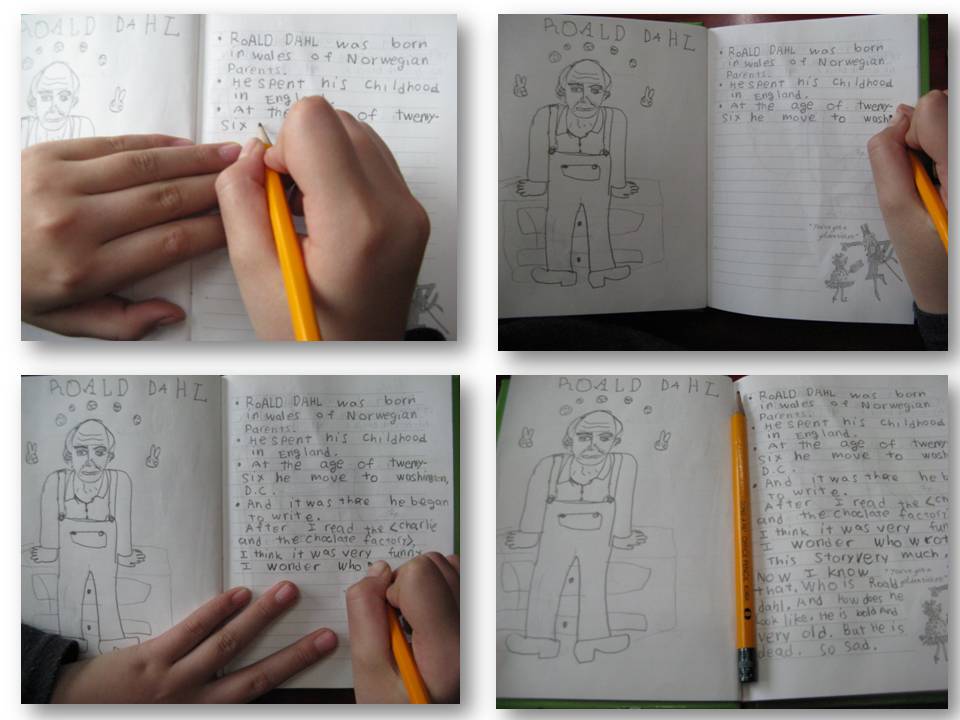 ROALD DAHL
• ROALD DAHL was born
in wales of Norwegian
Parents.
• He spent his childhood
in England
• At the of tweny-
six
ROALD DAHL
• ROALD DAHL was born
in wales of Norwegian
Parents.
• He spent his childhood
in England.
• At the age of tweny-
six he move to wash
"You're you
ROALD DAHL
• ROALD DAHL was born
in wales of Norwegian
Parents.
• He spent his childhood
in England.
• At the age of tweny-
six he move to washington,
D.C.
• And it was there he began
to write.
After I read the <charlie
and the choclate factory>
I think it was very funny
I wonder who
ROALD DAHL
• ROALD DAHL was born
in wales of Norwegian
Parents.
• He spent his childhood
in England.
• At the age of tweny-
six he move to wash
D.C.
• And it was there he b
to write.
After I read the <ch
and the choclate factory>
I think it was very fun
I wonder who wrot
This story very much.
Now I know
that. Who is Roald
dahl. And how does he
look like. He is bald And
very old. But He is
dead. so sad.